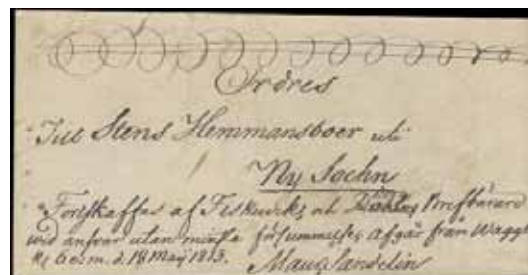 Ordres
Till Stens Hemmansboer uti
Ny Sochn
Fortskaffas af Fiskwiks och Brefbärare
wid answar utan minsta försummelse, Afgår från
Kl. 6 e.m. d. 18 Maij 1813. Mauz Sandelin